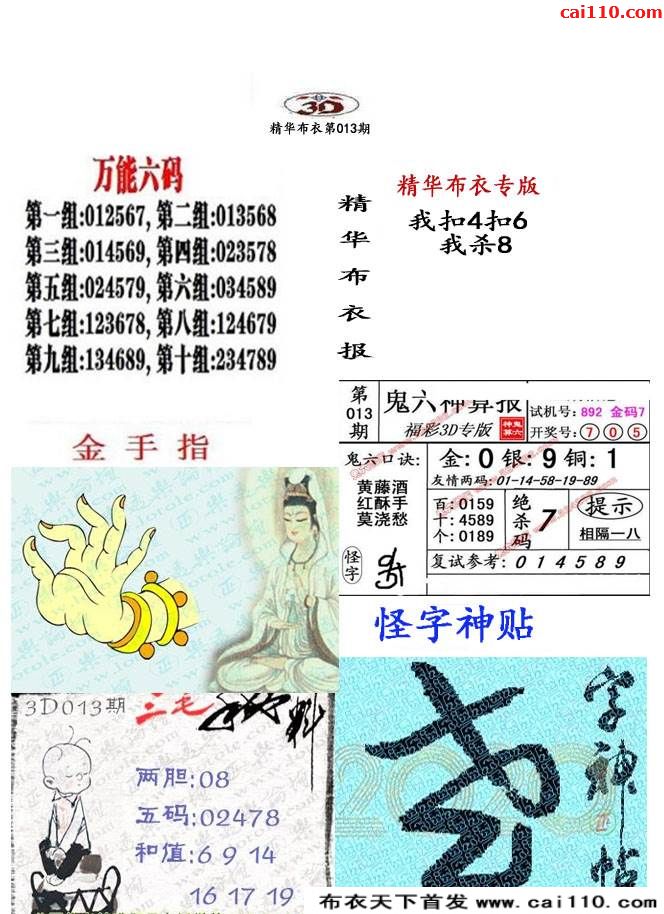 cai110.com
3D
精华布衣第013期
万能六码
第一组:012567,第二组:013568
第三组:014569,第四组:023578
第五组:024579,第六组:034589
第七组:123678,第八组:124679
第九组:134689,第十组:234789
精华布衣报
精华布衣专版
我扣4扣6
我杀8
金手指
第013期
鬼六神算报
福彩3D专版
试机号: 892 金码7
开奖号: 7 0 5
鬼六口诀:
黄藤酒
红酥手
莫浇愁
金:0 银:9 铜:1
友情两码:01-14-58-19-89
百:0159
十:4589
个:0189
绝杀码 7
提示
相隔一八
怪字
复试参考: 0 1 4 5 8 9
怪字神贴
字神帖
2020
3D013期
三毛
两胆:08
五码:02478
和值:6 9 14
16 17 19
布衣天下首发 www.cai110.com